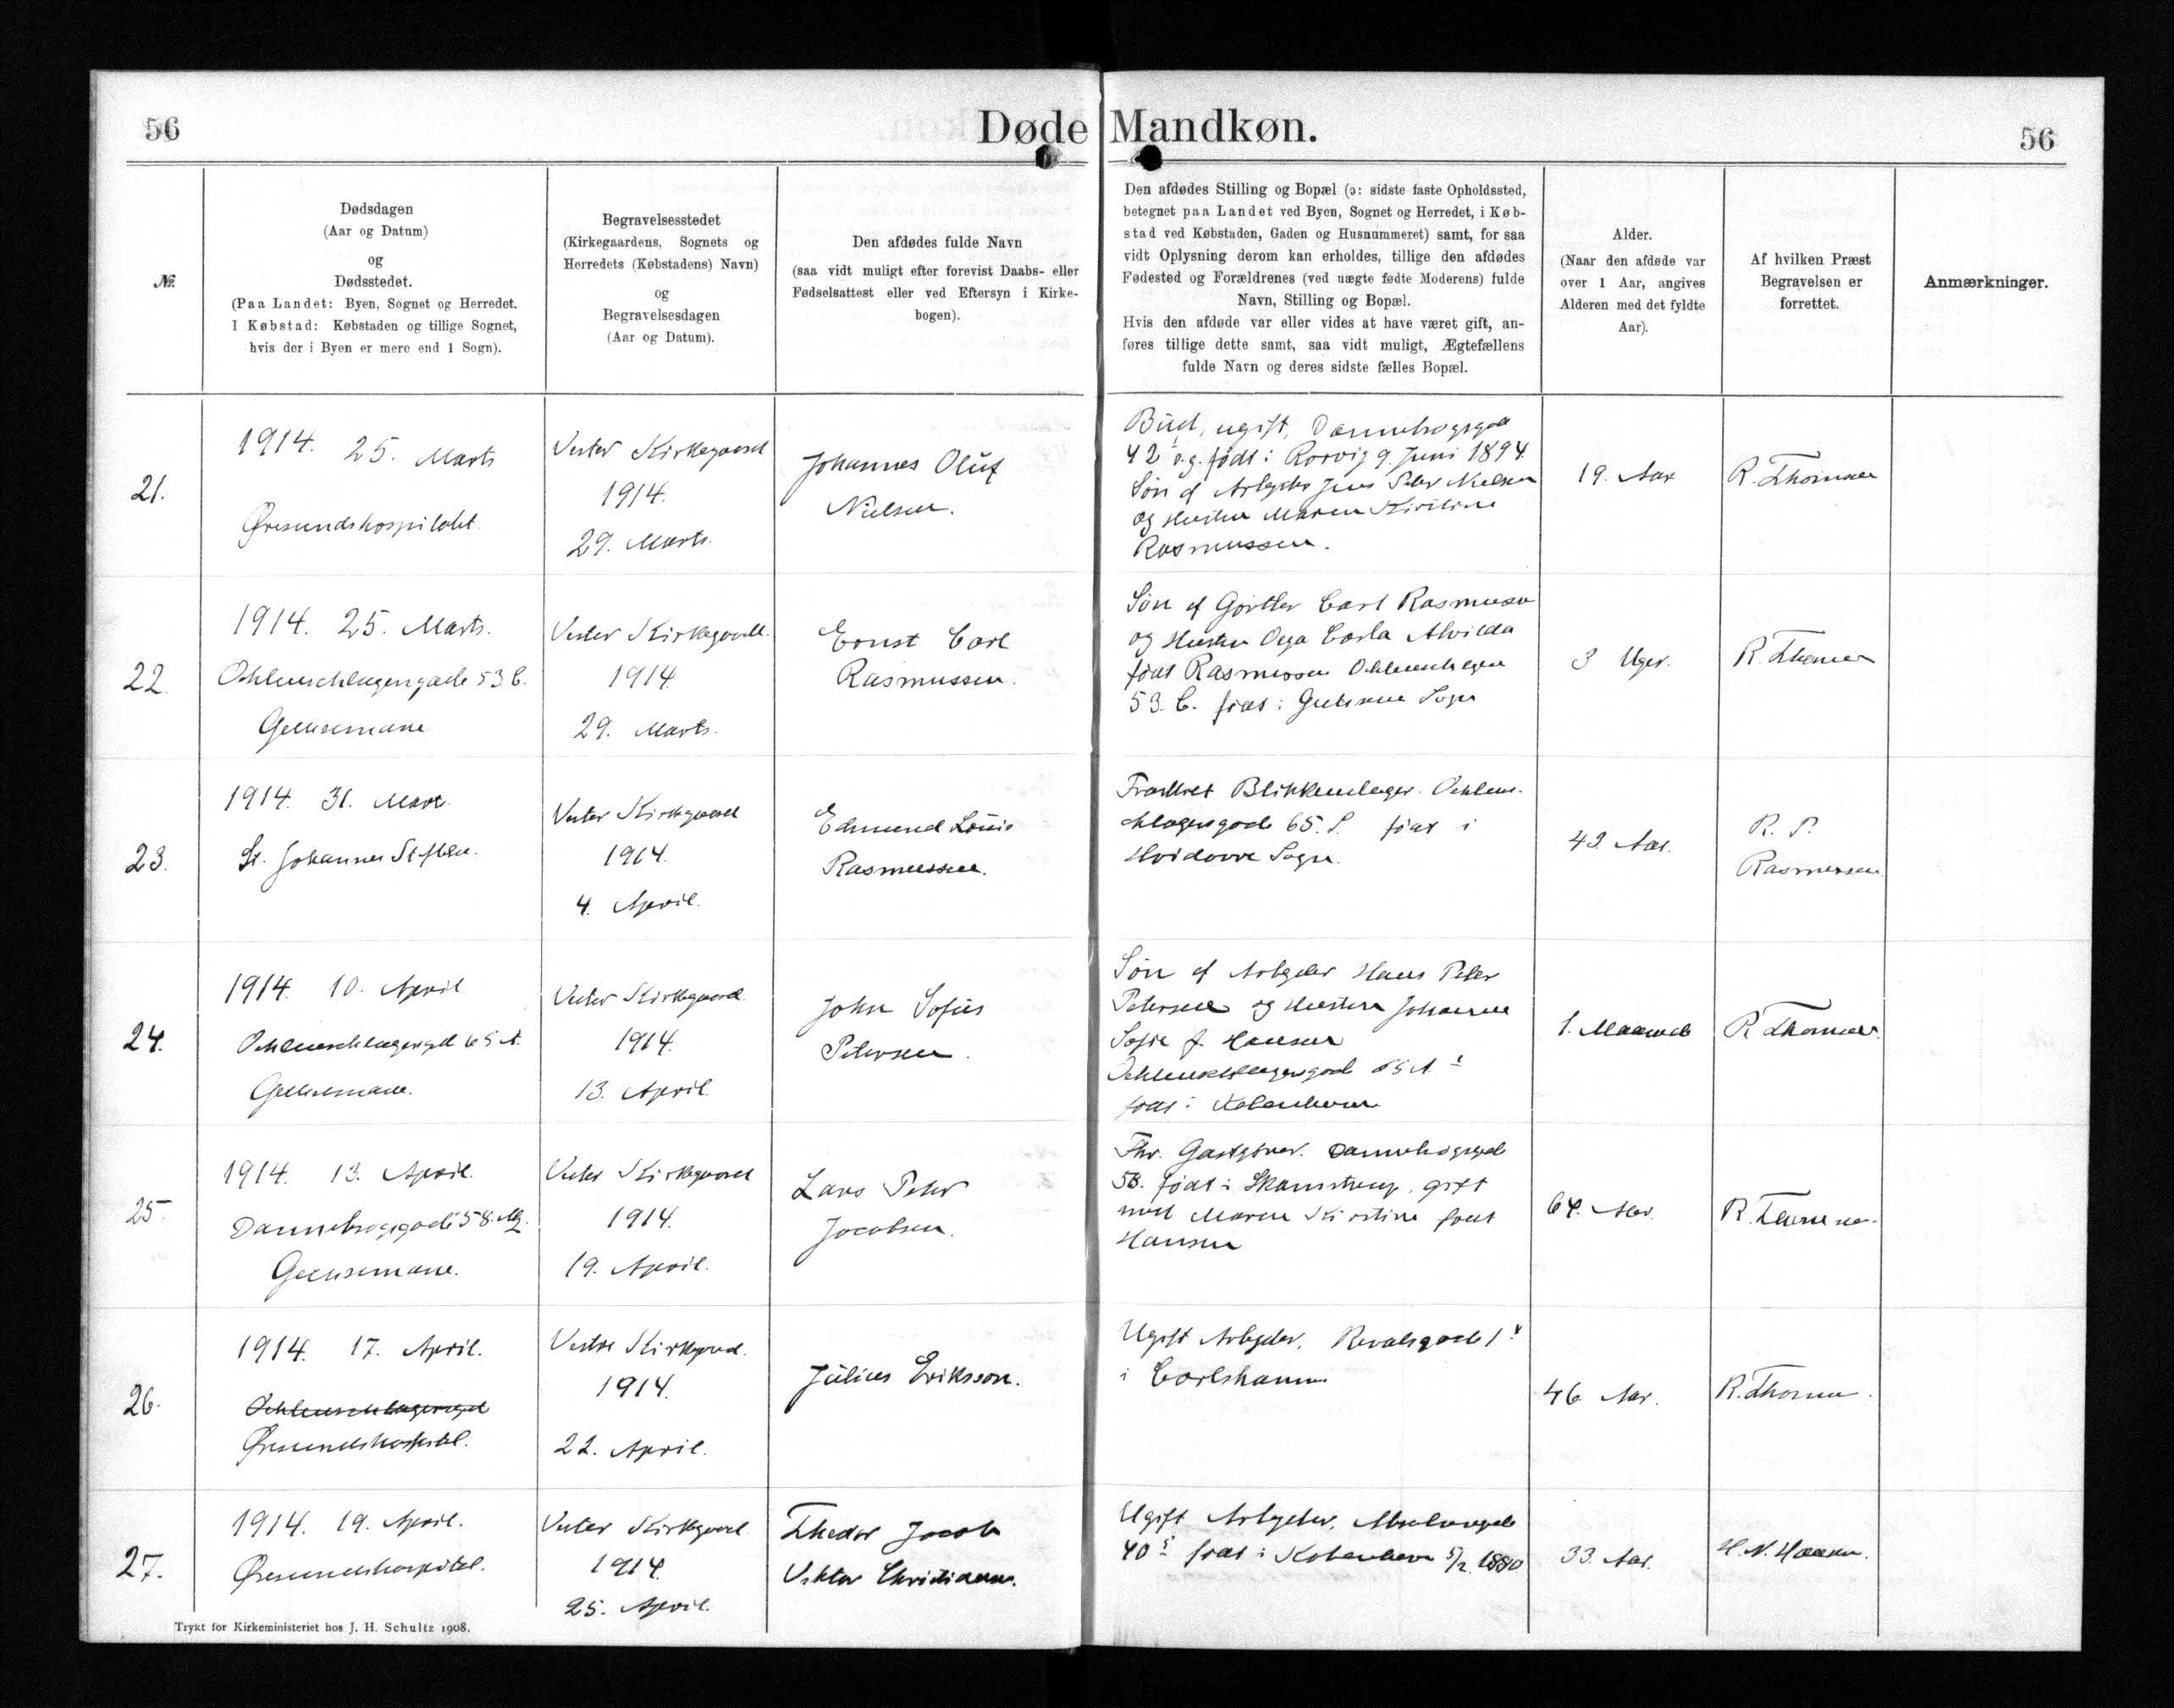 56
Døde Mandkøn.
56
Nr.
Dødsdagen
(Aar og Datum)
og
Dødsstedet.
(Paa Landet: Byen, Sognet og Herredet.
I Købstad: Købstaden og tillige Sognet,
hvis der i Byen er mere end 1 Sogn).
Begravelsesstedet
(Kirkegaardens, Sognets og
Herredets (Købstadens) Navn)
og
Begravelsesdagen
(Aar og Datum).
Den afdødes fulde Navn
(saa vidt muligt efter forevist Daabs- eller
Fødselsattest eller ved Eftersyn i Kirke-
bogen).
Den afdødes Stilling og Bopæl (ɔ: sidste faste Opholdssted,
betegnet paa Landet ved Byen, Sognet og Herredet, i Køb-
stad ved Købstaden, Gaden og Husnummeret) samt, for saa
vidt Oplysning derom kan erholdes, tillige den afdødes
Fødested og Forældrenes (ved uægte fødte Moderens) fulde
Navn, Stilling og Bopæl.
Hvis den afdøde var eller vides at have været gift, an-
føres tillige dette samt, saa vidt muligt, Ægtefællens
fulde Navn og deres sidste fælles Bopæl.
Alder.
(Naar den afdøde var
over 1 Aar, angives
Alderen med det fyldte
Aar).
Af hvilken Præst
Begravelsen er
forrettet.
Anmærkninger.
21.
1914. 25. Marts
Øresundshospitalet
Vester Kirkegaard
1914.
29. Marts.
Johannes Oluf
Nielsen.
Bud, ugift, Dannebrogsgade
42 født i Rørvig 9. Juni 1894.
Søn af Arbejder Jens Peter Nielsen
og Hustru Maren Kirstine
Rasmussen.
19. Aar
R. Thomsen
22.
1914. 25. Marts.
Oehlenschlægersgade 53 C.
Gethsemane
Vester Kirkegaard.
1914
29. Marts.
Ernst Carl
Rasmussen.
Søn af Gørtler Carl Rasmussen
og Hustru Olga Carla Alvilda
født Rasmussen Oehlenschlægers
53. C. født i Gethsemane Sogn
3 Uger.
R. Thomsen
23.
1914. 31. Marts.
St. Johannes Stiftelse.
Vester Kirkegaard
1914.
4. April.
Edmund Louis
Rasmussen.
Fraskilt Blikkenslager. Oehlen-
schlægersgade 65. S. født i
Hvidovre Sogn.
43. Aar.
R. P.
Rasmussen
24.
1914. 10. April
Oehlenschlægersgd 65 A.
Gethsemane.
Vester Kirkegaard
1914.
13. April.
John Sofus
Petersen.
Søn af Arbejder Hans Peter
Petersen og Hustru Johanne
Sofie f. Hansen
Oehlenschlægersgade 65 A.
født i København
1. Maaned
R Thomsen.
25.
1914. 13. April.
Dannebrogsgade 58.
Gethsemane.
Vester Kirkegaard
1914.
19. April.
Lars Peter
Jacobsen.
Fhv. Gæstgiver. Dannebrogsgade
58. født i Skamstrup, gift
med Maren Kirstine født
Hansen
64. Aar.
R. Thomsen.
26.
1914. 17. April.
Oehlenschlægersgd
Øresundshospital.
Vestre Kirkegaard.
1914.
22. April.
Julius Eriksson.
Ugift Arbejder. Revalsgade 1
i Carlshamn.
46. Aar.
R. Thomsen.
27.
1914. 19. April.
Øresundshospital.
Vester Kirkegaard
1914.
25. April.
Thedor Jacob
Viktor Christiansen.
Ugift Arbejder, Absalonsgade
40 født i København 5/2 1880
33. Aar.
H. N. Hansen.
Trykt for Kirkeministeriet hos J. H. Schultz 1908.